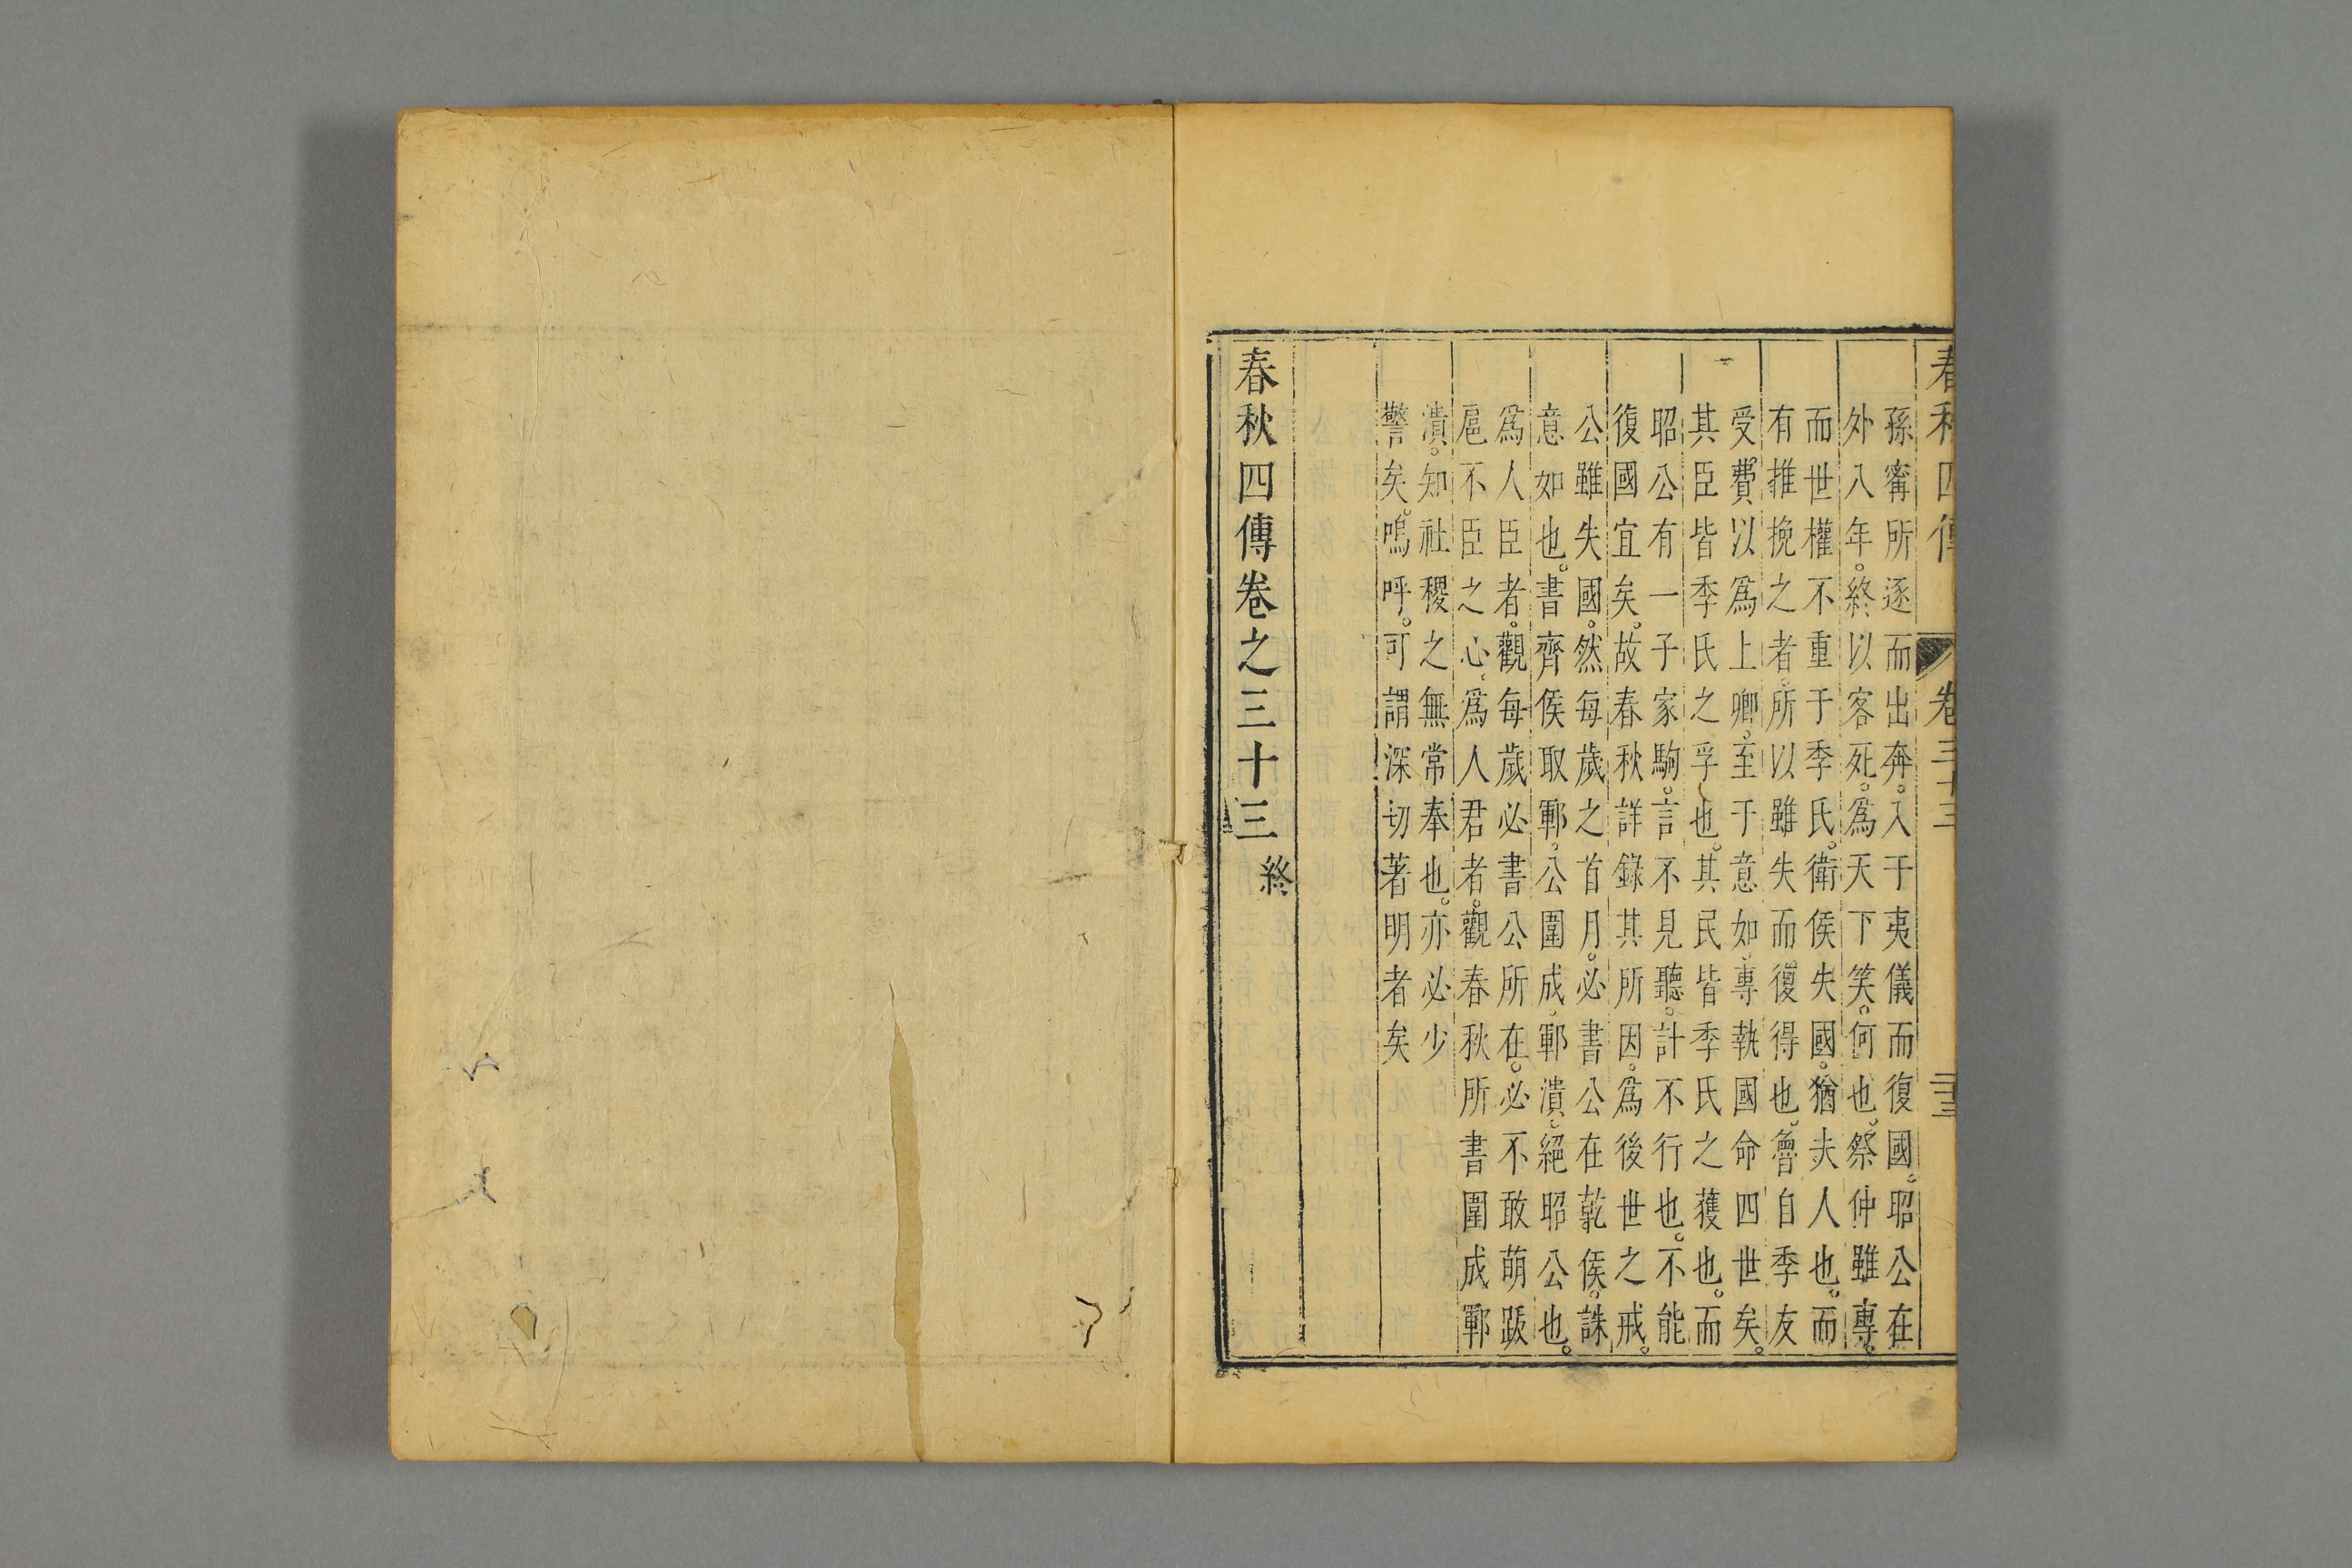 春秋四傳 卷三十三 三十三
孫甯所逐而出奔。入于夷儀而復國。昭公在
外八年。終以客死。爲天下笑。何也。祭仲雖專。
而世權不重于季氏。衛侯失國。猶夫人也。而
有推挽之者。所以雖失而復得也。魯自季友
受費。以爲上卿。至于意如。專執國命四世矣。
其臣皆季氏之孚也。其民皆季氏之獲也。而
昭公有一子家駒。言不見聽。計不行也。不能
復國宜矣。故春秋詳錄其所因。爲後世之戒。
公雖失國。然每歲之首月。必書公在乾侯。誅
意如也。書齊侯取鄆。公圍成。鄆潰。絕昭公也。
爲人臣者。觀每歲必書公所在。必不敢萌跋
扈不臣之心。爲人君者。觀春秋所書圍成鄆
潰。知社稷之無常奉也。亦必少
警矣。嗚呼。可謂深切著明者矣
春秋四傳卷之三十三 終